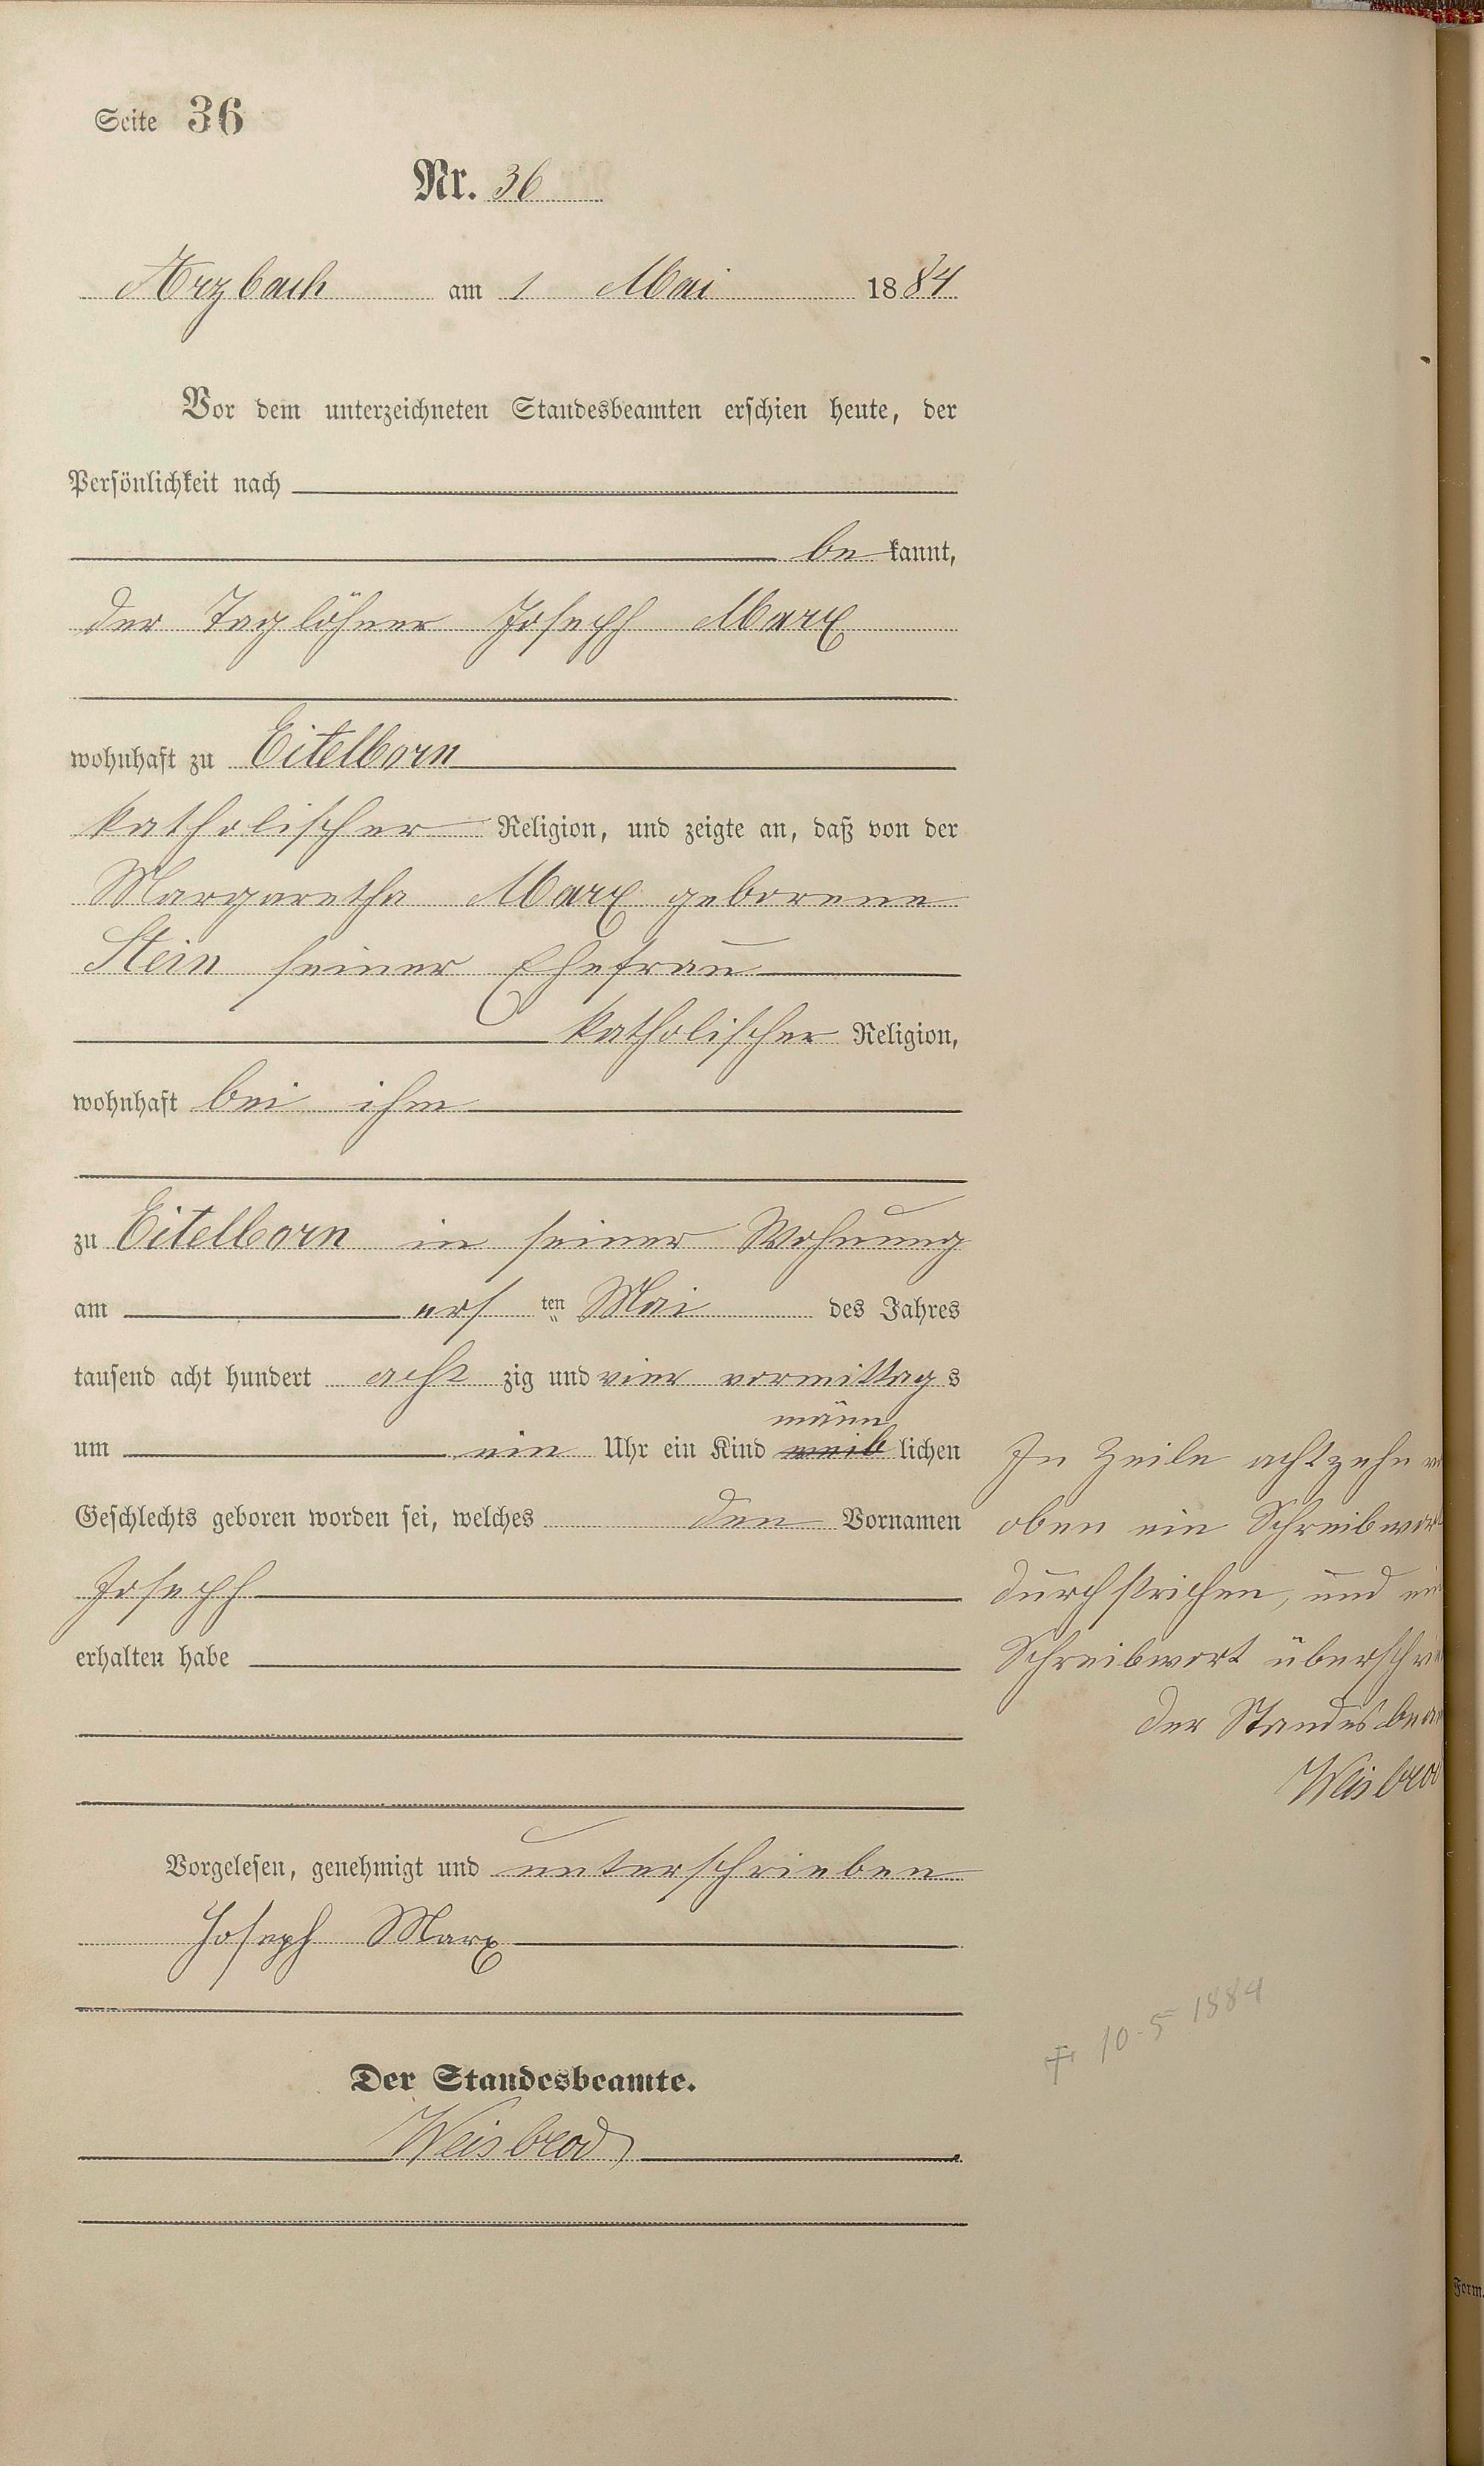 Seite 36
Nr. 36
Arzbach am 1 Mai 1884
Vor dem unterzeichneten Standesbeamten erschien heute, der
Persönlichkeit nach
be kannt,
der Taglöhner Joseph Marx
wohnhaft zu Eitelborn
katholischer Religion, und zeigte an, daß von der
Margaretha Marx geborene
Stein seiner Ehefrau
katholischer Religion,
wohnhaft bei ihm
zu Eitelborn in seiner Wohnung
am ersten Mai des Jahres
tausend acht hundert achtzig und vier vormittags
männ
um ein Uhr ein Kind weiblichen
Geschlechts geboren worden sei, welches den Vornamen
Joseph
erhalten habe
Vorgelesen, genehmigt und unterschrieben
Joseph Marx
Der Standesbeamte.
Weisbrod
In Zeile achtzehn
oben ein Schreibwort
durchstrichen, und ein
Schreibwort überschrie
Der Standesbeam
Weisbrod
+ 10-5 1884
Form.